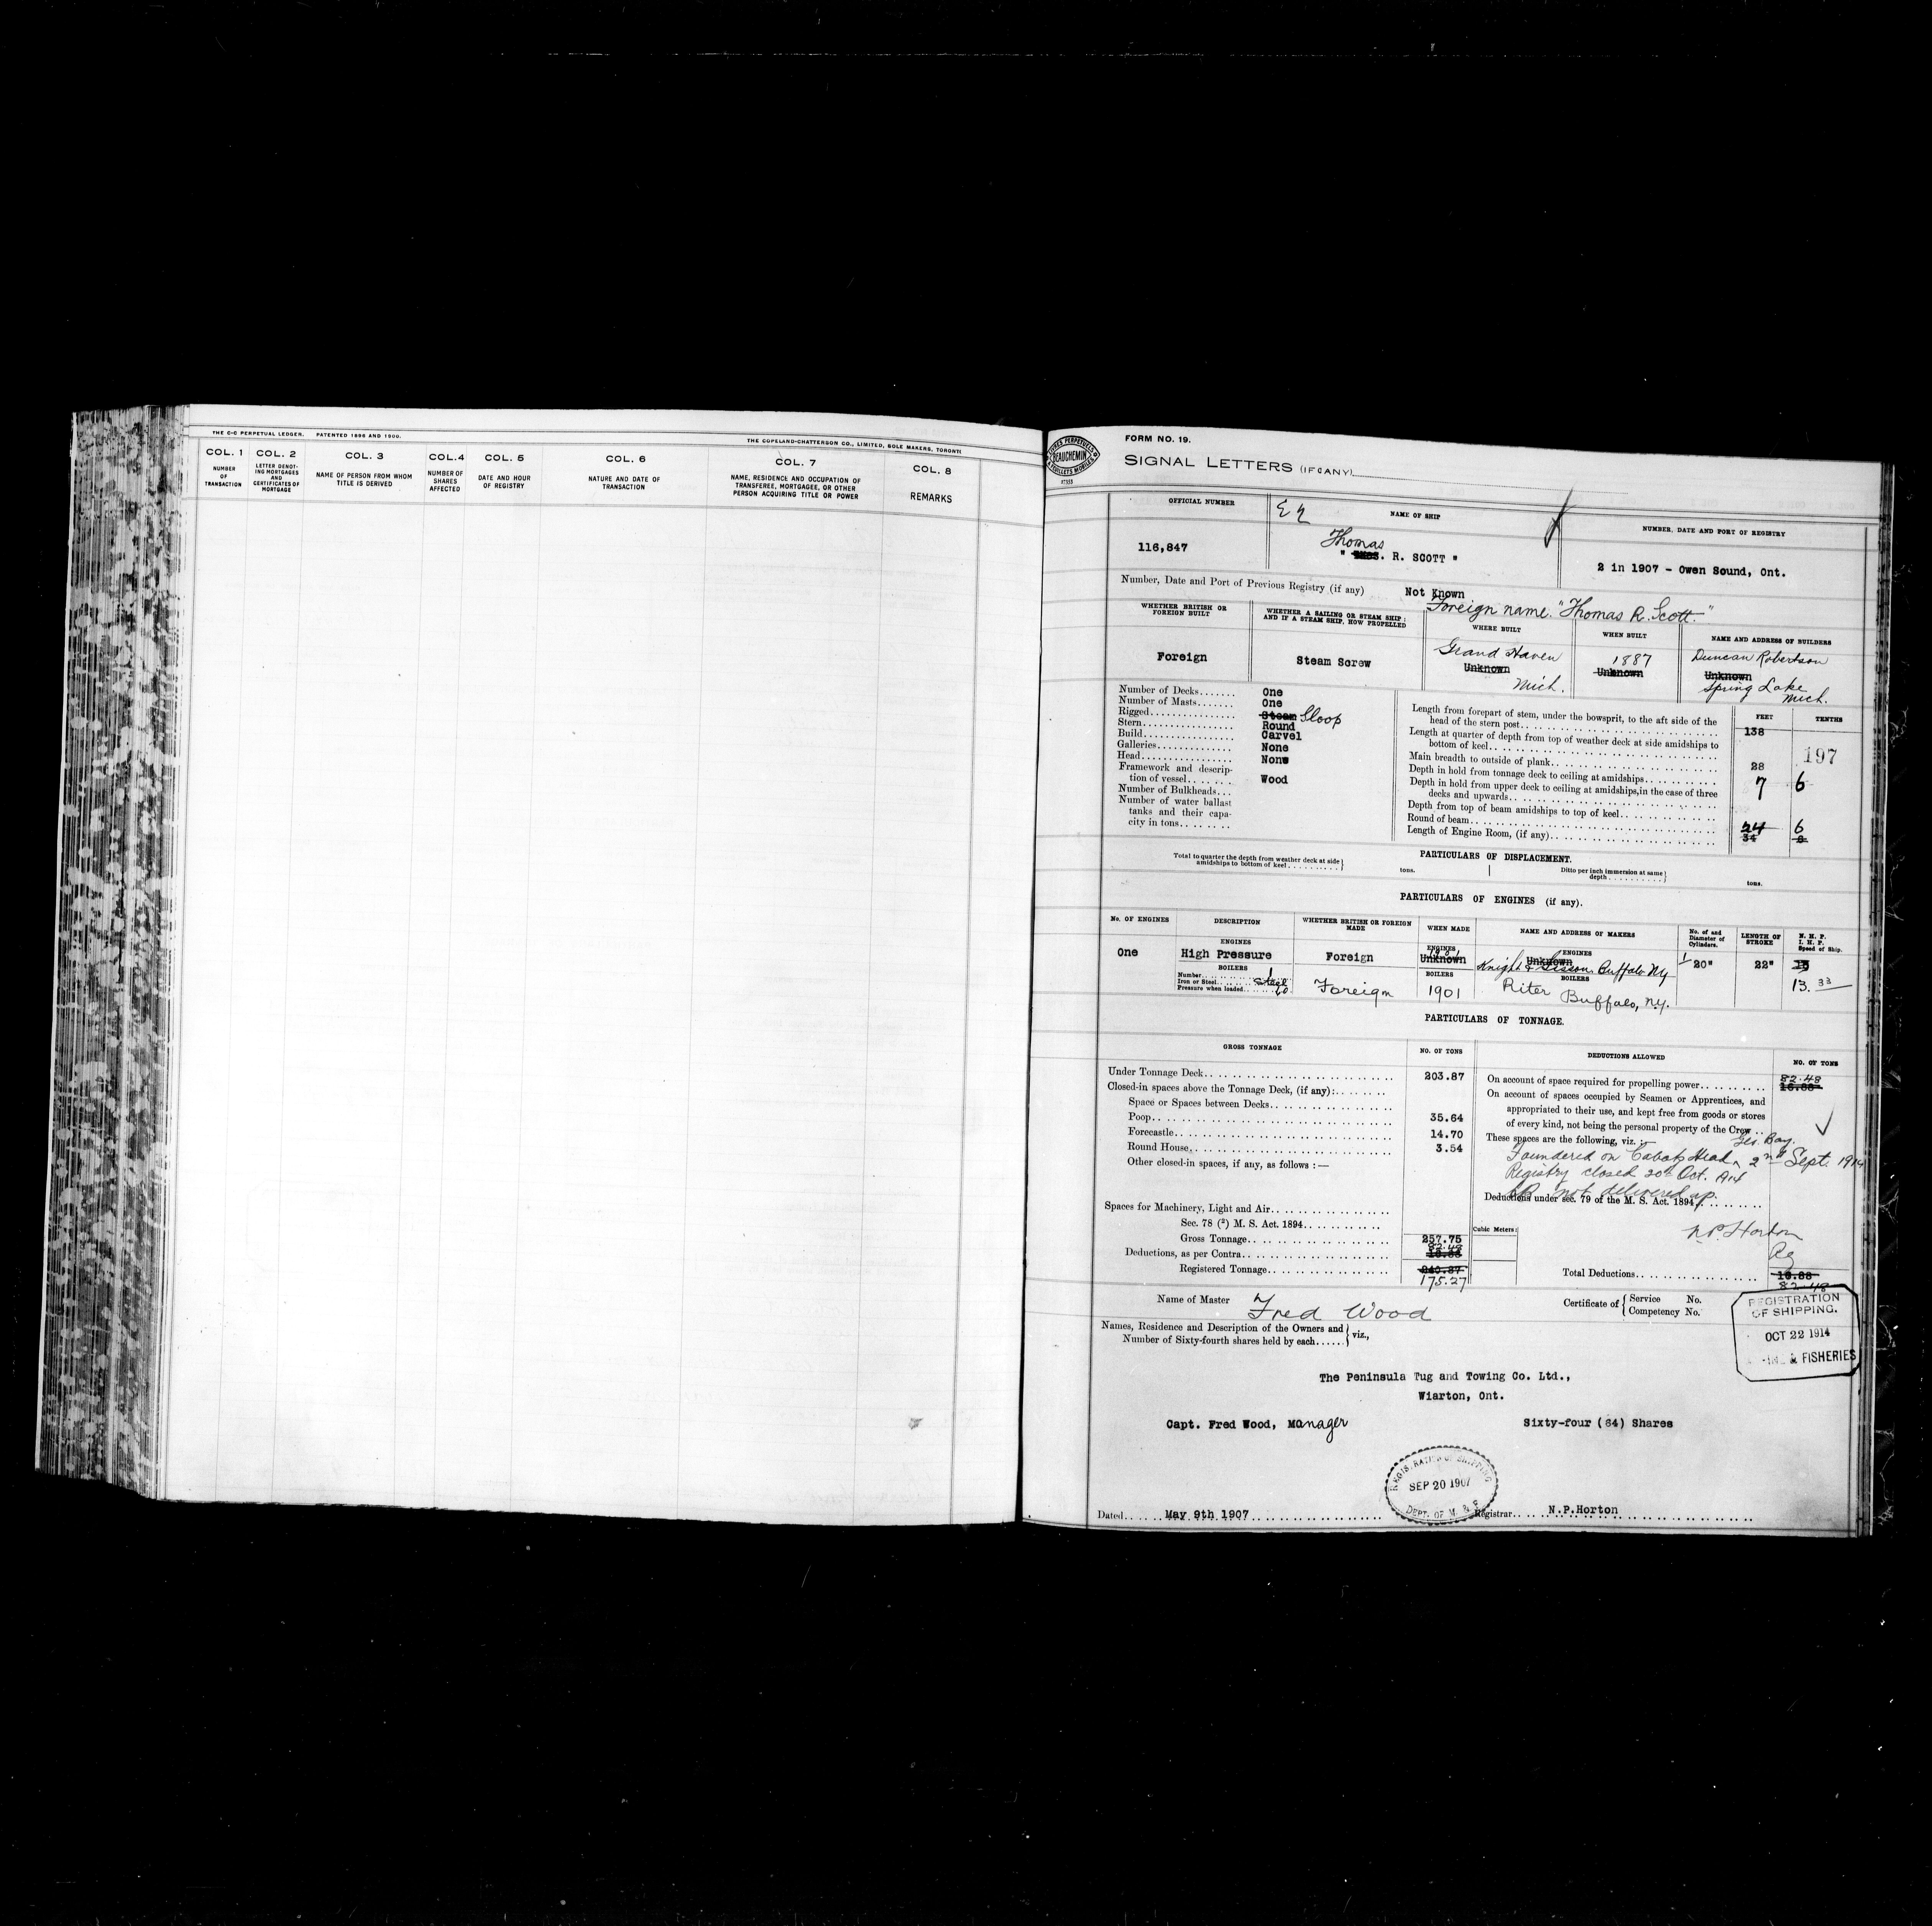 THE C-C PERPETUAL LEDGER. PATENTED 1896 AND 1900.
THE COPELAND-CHATTERSON CO., LIMITED, SOLE MAKERS, TORONTO
COL. 1 COL. 2 COL. 3 COL. 4 COL. 5 COL. 6 COL. 7 COL. 8
NUMBER OF TRANSACTION
LETTER DENOT-ING MORTGAGES AND CERTIFICATES OF MORTGAGE
NAME OF PERSON FROM WHOM TITLE IS DERIVED
NUMBER OF SHARES AFFECTED
DATE AND HOUR OF REGISTRY
NATURE AND DATE OF TRANSACTION
NAME, RESIDENCE AND OCCUPATION OF TRANSFEREE, MORTGAGEE, OR OTHER PERSON ACQUIRING TITLE OR POWER
REMARKS
BEAUCHEMIN
FORM NO. 19.
SIGNAL LETTERS (IF ANY)
OFFICIAL NUMBER
NAME OF SHIP
NUMBER, DATE AND PORT OF REGISTRY
116,847
Thomas
" THOS. R. SCOTT "
2 in 1907 - Owen Sound, Ont.
Number, Date and Port of Previous Registry (if any) Not Known
Foreign name "Thomas R. Scott."
WHETHER BRITISH OR FOREIGN BUILT
WHETHER A SAILING OR STEAM SHIP; AND IF A STEAM SHIP, HOW PROPELLED
WHERE BUILT
WHEN BUILT
NAME AND ADDRESS OF BUILDERS
Foreign
Steam Screw
Grand Haven
Unknown
Mich.
1887
Unknown
Duncan Robertson
Unknown
Spring Lake
Mich.
Number of Decks....... One
Number of Masts....... One
Rigged................ Steam Sloop
Stern................. Round
Build................. Carvel
Galleries.............. None
Head.................. None
Framework and descrip-
tion of vessel........ Wood
Number of Bulkheads...
Number of water ballast
tanks and their capa-
city in tons........
FEET TENTHS
Length from forepart of stem, under the bowsprit, to the aft side of the
head of the stern post........ 138
Length at quarter of depth from top of weather deck at side amidships to
bottom of keel........
197
Main breadth to outside of plank........ 28
Depth in hold from tonnage deck to ceiling at amidships........ 7 6
Depth in hold from upper deck to ceiling at amidships, in the case of three
decks and upwards........
Depth from top of beam amidships to top of keel........
Round of beam........
Length of Engine Room, (if any)........ 24 6
34
PARTICULARS OF DISPLACEMENT.
Total to quarter the depth from weather deck at side
amidships to bottom of keel........ tons.
Ditto per inch immersion at same
depth........ tons.
PARTICULARS OF ENGINES (if any).
No. OF ENGINES
DESCRIPTION
WHETHER BRITISH OR FOREIGN MADE
WHEN MADE
NAME AND ADDRESS OF MAKERS
No. of and Diameter of Cylinders.
LENGTH OF STROKE
N. H. P. I. H. P. Speed of Ship.
One
ENGINES
High Pressure
Foreign
ENGINES
Unknown
ENGINES
Unknown
Knight & Sisson Buffalo NY
1 20"
22"
13
13.33
BOILERS
Number........ 1
Iron or Steel........ Steel
Pressure when loaded........
Foreign
BOILERS
1901
BOILERS
Riter Buffalo, N.Y.
PARTICULARS OF TONNAGE.
GROSS TONNAGE
NO. OF TONS
DEDUCTIONS ALLOWED
NO. OF TONS
Under Tonnage Deck........ 203.87
Closed-in spaces above the Tonnage Deck, (if any):........
Space or Spaces between Decks........
Poop........ 35.64
Forecastle........ 14.70
Round House........ 3.54
Other closed-in spaces, if any, as follows :—
Spaces for Machinery, Light and Air........
Sec. 78 (2) M. S. Act. 1894........
Gross Tonnage........ 257.75
Cubic Meters:
Deductions, as per Contra........ 82.48
16.88
Registered Tonnage........ 240.87
175.27
On account of space required for propelling power........ 82.48
16.88
On account of spaces occupied by Seamen or Apprentices, and
appropriated to their use, and kept free from goods or stores
of every kind, not being the personal property of the Crew..
These spaces are the following, viz :—
Geo. Bay.
Foundered on Cabots Head 2nd Sept. 1914
Registry closed 20th Oct. 1914
not delivered up.
Deductions under sec. 79 of the M. S. Act. 1894........
N.P. Horton
Rg
Total Deductions........ 16.88
82.48
Name of Master Fred Wood
Certificate of { Service No.
Competency No.
Names, Residence and Description of the Owners and
Number of Sixty-fourth shares held by each...... } viz.,
REGISTRATION
OF SHIPPING.
OCT 22 1914
& FISHERIES
The Peninsula Tug and Towing Co. Ltd.,
Wiarton, Ont.
Capt. Fred Wood, Manager
Sixty-four (64) Shares
REGISTRATION OF SHIPPING
SEP 20 1907
DEPT. OF M. & F.
Dated.... May 9th 1907........
Registrar.... N.P.Horton